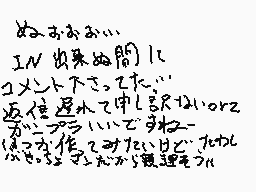 ぬぉぉぉぃ…
IN出来ぬ間に
コメント下さってた…
返信遅れて申し訳ないorz
ガンプラいいですねー
ほつか作ってみたいけど
ぶきっちょマンだから無理そうだ